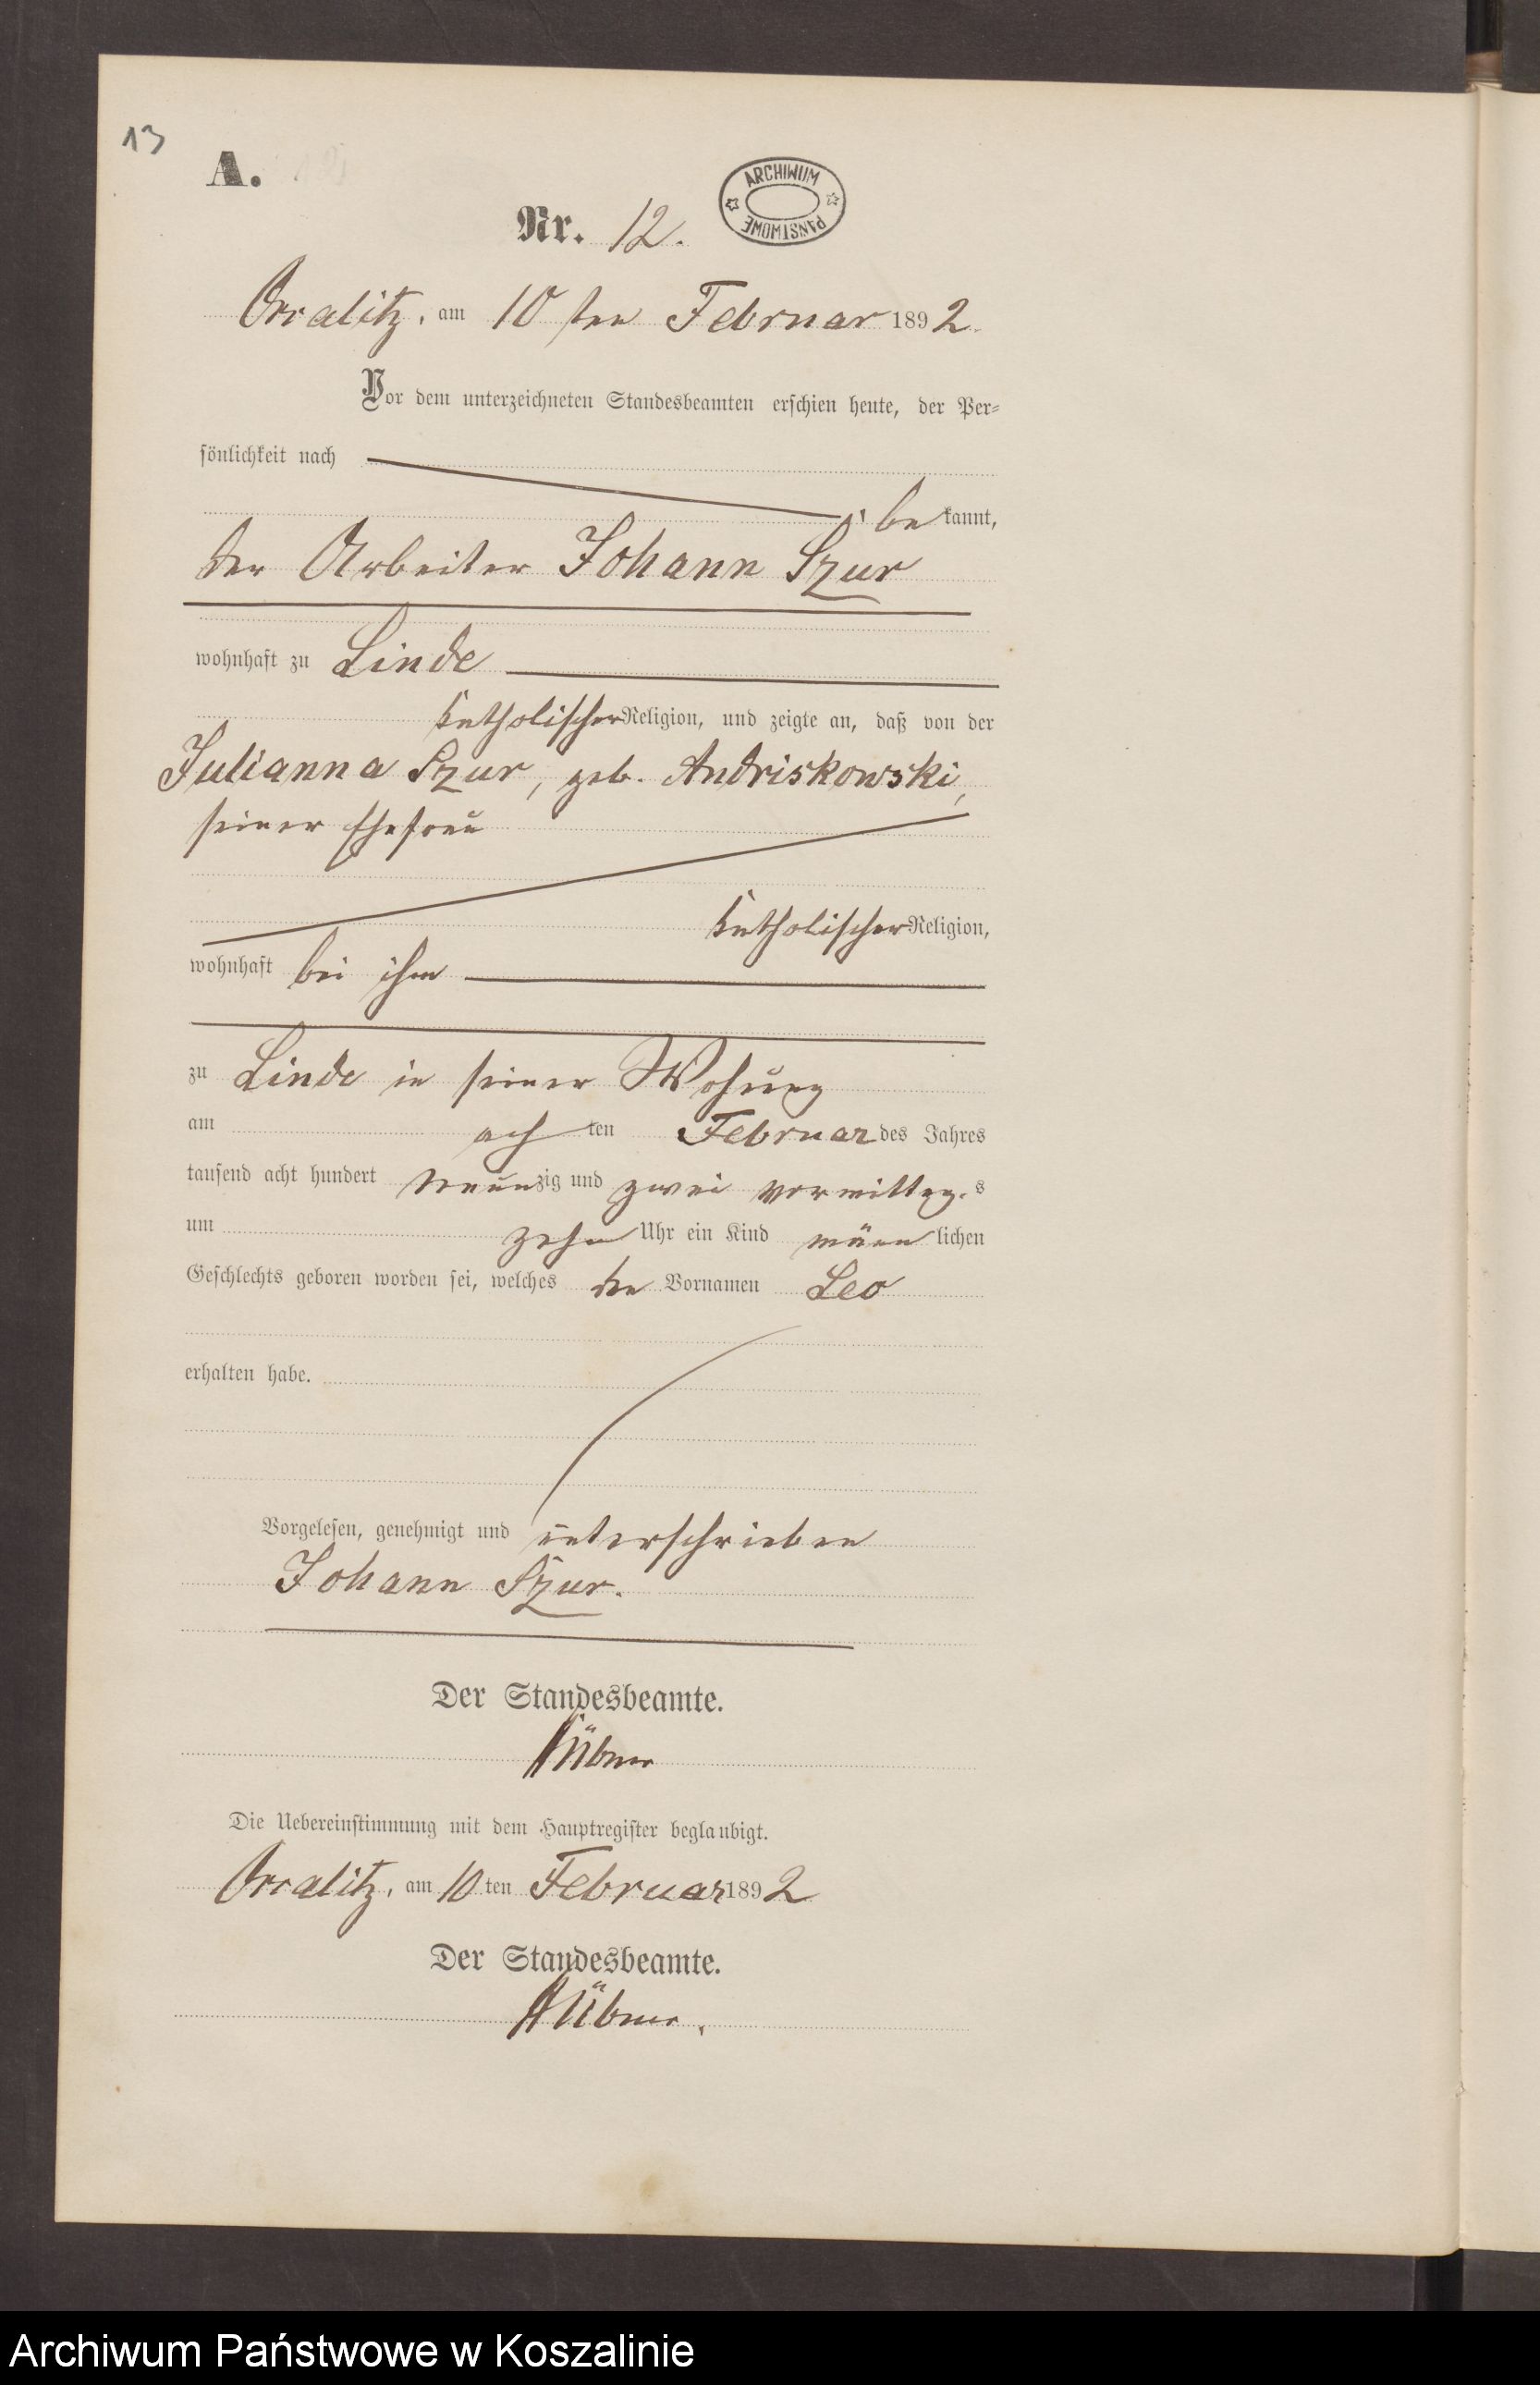 13
A.
ARCHIWUM PAŃSTWOWE
Nr. 12.
am 10ten Februar 1892.
Vor dem unterzeichneten Standesbeamten erschien heute, der Per-
sönlichkeit nach
be kannt,
der Arbeiter Johann Szur
wohnhaft zu Linde
katholischer Religion, und zeigte an, daß von der
Julianna Szur, geb. Andriskowski,
seiner Ehefrau
katholischer Religion,
wohnhaft bei ihm
zu Linde in seiner Wohung
am achten Februar des Jahres
tausend acht hundert neunzig und zwei vormittags
um zehn Uhr ein Kind männlichen
Geschlechts geboren worden sei, welches den Vornamen Leo
erhalten habe.
Vorgelesen, genehmigt und unterschrieben
Johann Szur.
Der Standesbeamte.
Hübner
Die Uebereinstimmung mit dem Hauptregister beglaubigt.
am 10ten Februar 1892
Der Standesbeamte.
Hübner.
Archiwum Państwowe w Koszalinie